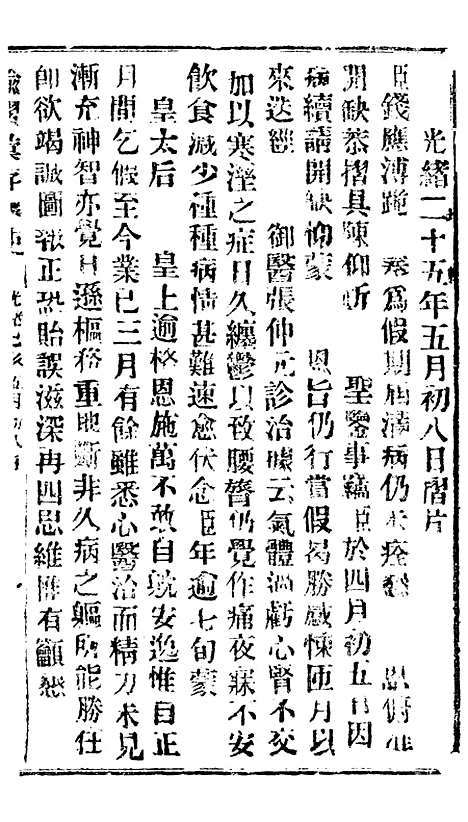 光緒二十五年五月初八日摺片
臣錢應溥跪 奏爲假期屆滿病仍未痊懇 恩俯准
開缺恭摺具陳仰祈 聖鑒事竊臣於四月初五日因
病續請開缺仰蒙 恩旨仍行賞假曷勝感悚匝月以
來迭經 御醫張仲元診治據云氣體過虧心腎不交
加以寒溼之症日久纏鬱以致腰膂仍覺作痛夜寐不安
飲食減少種種病情甚難速愈伏念臣年逾七旬蒙
皇太后 皇上逾格恩施萬不敢自就安逸惟自正
月間乞假至今業已三月有餘雖悉心醫治而精力未見
漸充神智亦覺日遜樞務重地斷非久病之軀所能勝任
卽欲竭誠圖報正恐貽誤滋深再四思維惟有籲懇
諭摺彙存